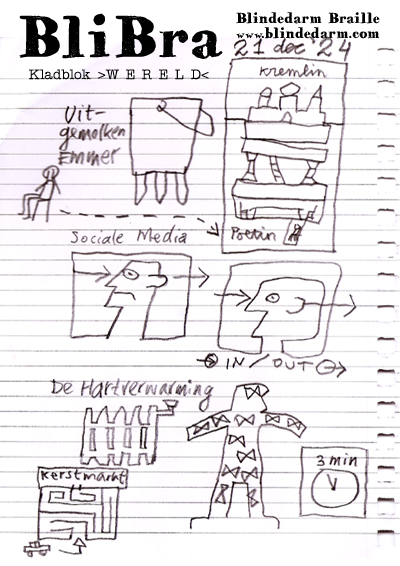 BliBra
Blindedarm Braille
www.blindedarm.com
Kladblok >WERELD<
21 dec '24
Kremlin
Uit-
gemolken
Emmer
Poetin
Sociale Media
IN / OUT
De Hartverwarming
3 min
Kerstmarkt